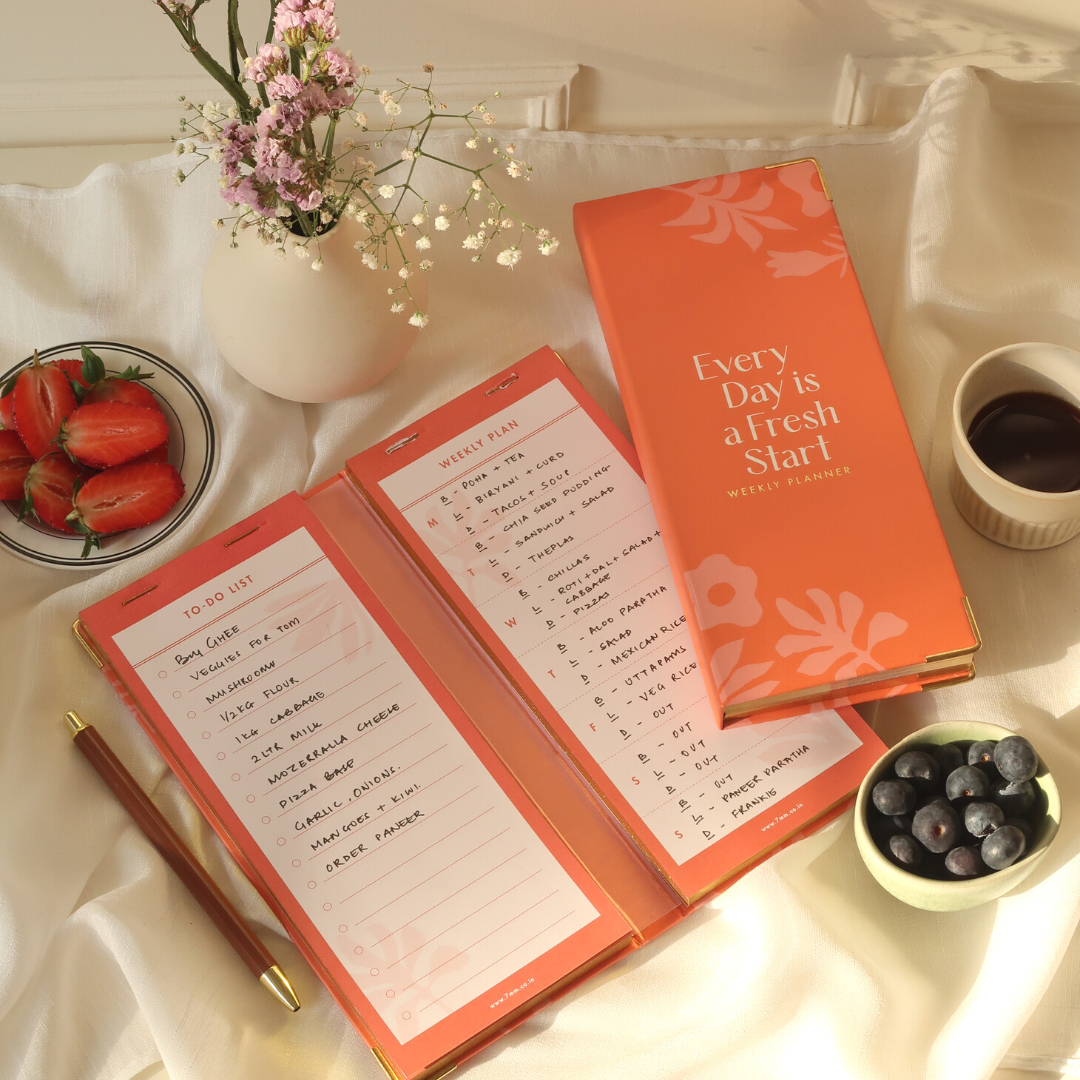 TO-DO LIST
Buy GHEE
VEGGIES FOR TOM
MUSHROOMS
1/2KG FLOUR
1KG CABBAGE
2LTR MILK
MOZERRALLA CHEESE
PIZZA BASE
GARLIC, ONIONS.
MANGOES + KIWI.
ORDER PANEER
www.7mm.co.in
WEEKLY PLAN
M
B - POHA + TEA
L - BIRYANI + CURD
D - TACOS + SOUP
T
B - CHIA SEED PUDDING
L - SANDWICH + SALAD
D - THEPLAS
W
B - CHILLAS
L - ROTI + DAL + SALAD +
CABBAGE
D - PIZZAS
T
B - ALOO PARATHA
L - SALAD
D - MEXICAN RICE
F
B - UTTAPAMS
L - VEG RICE
D - OUT
S
B - OUT
L - OUT
D - OUT
S
B - OUT
L - PANEER PARATHA
D - FRANKIE
www.7mm.co.in
Every
Day is
a Fresh
Start
WEEKLY PLANNER